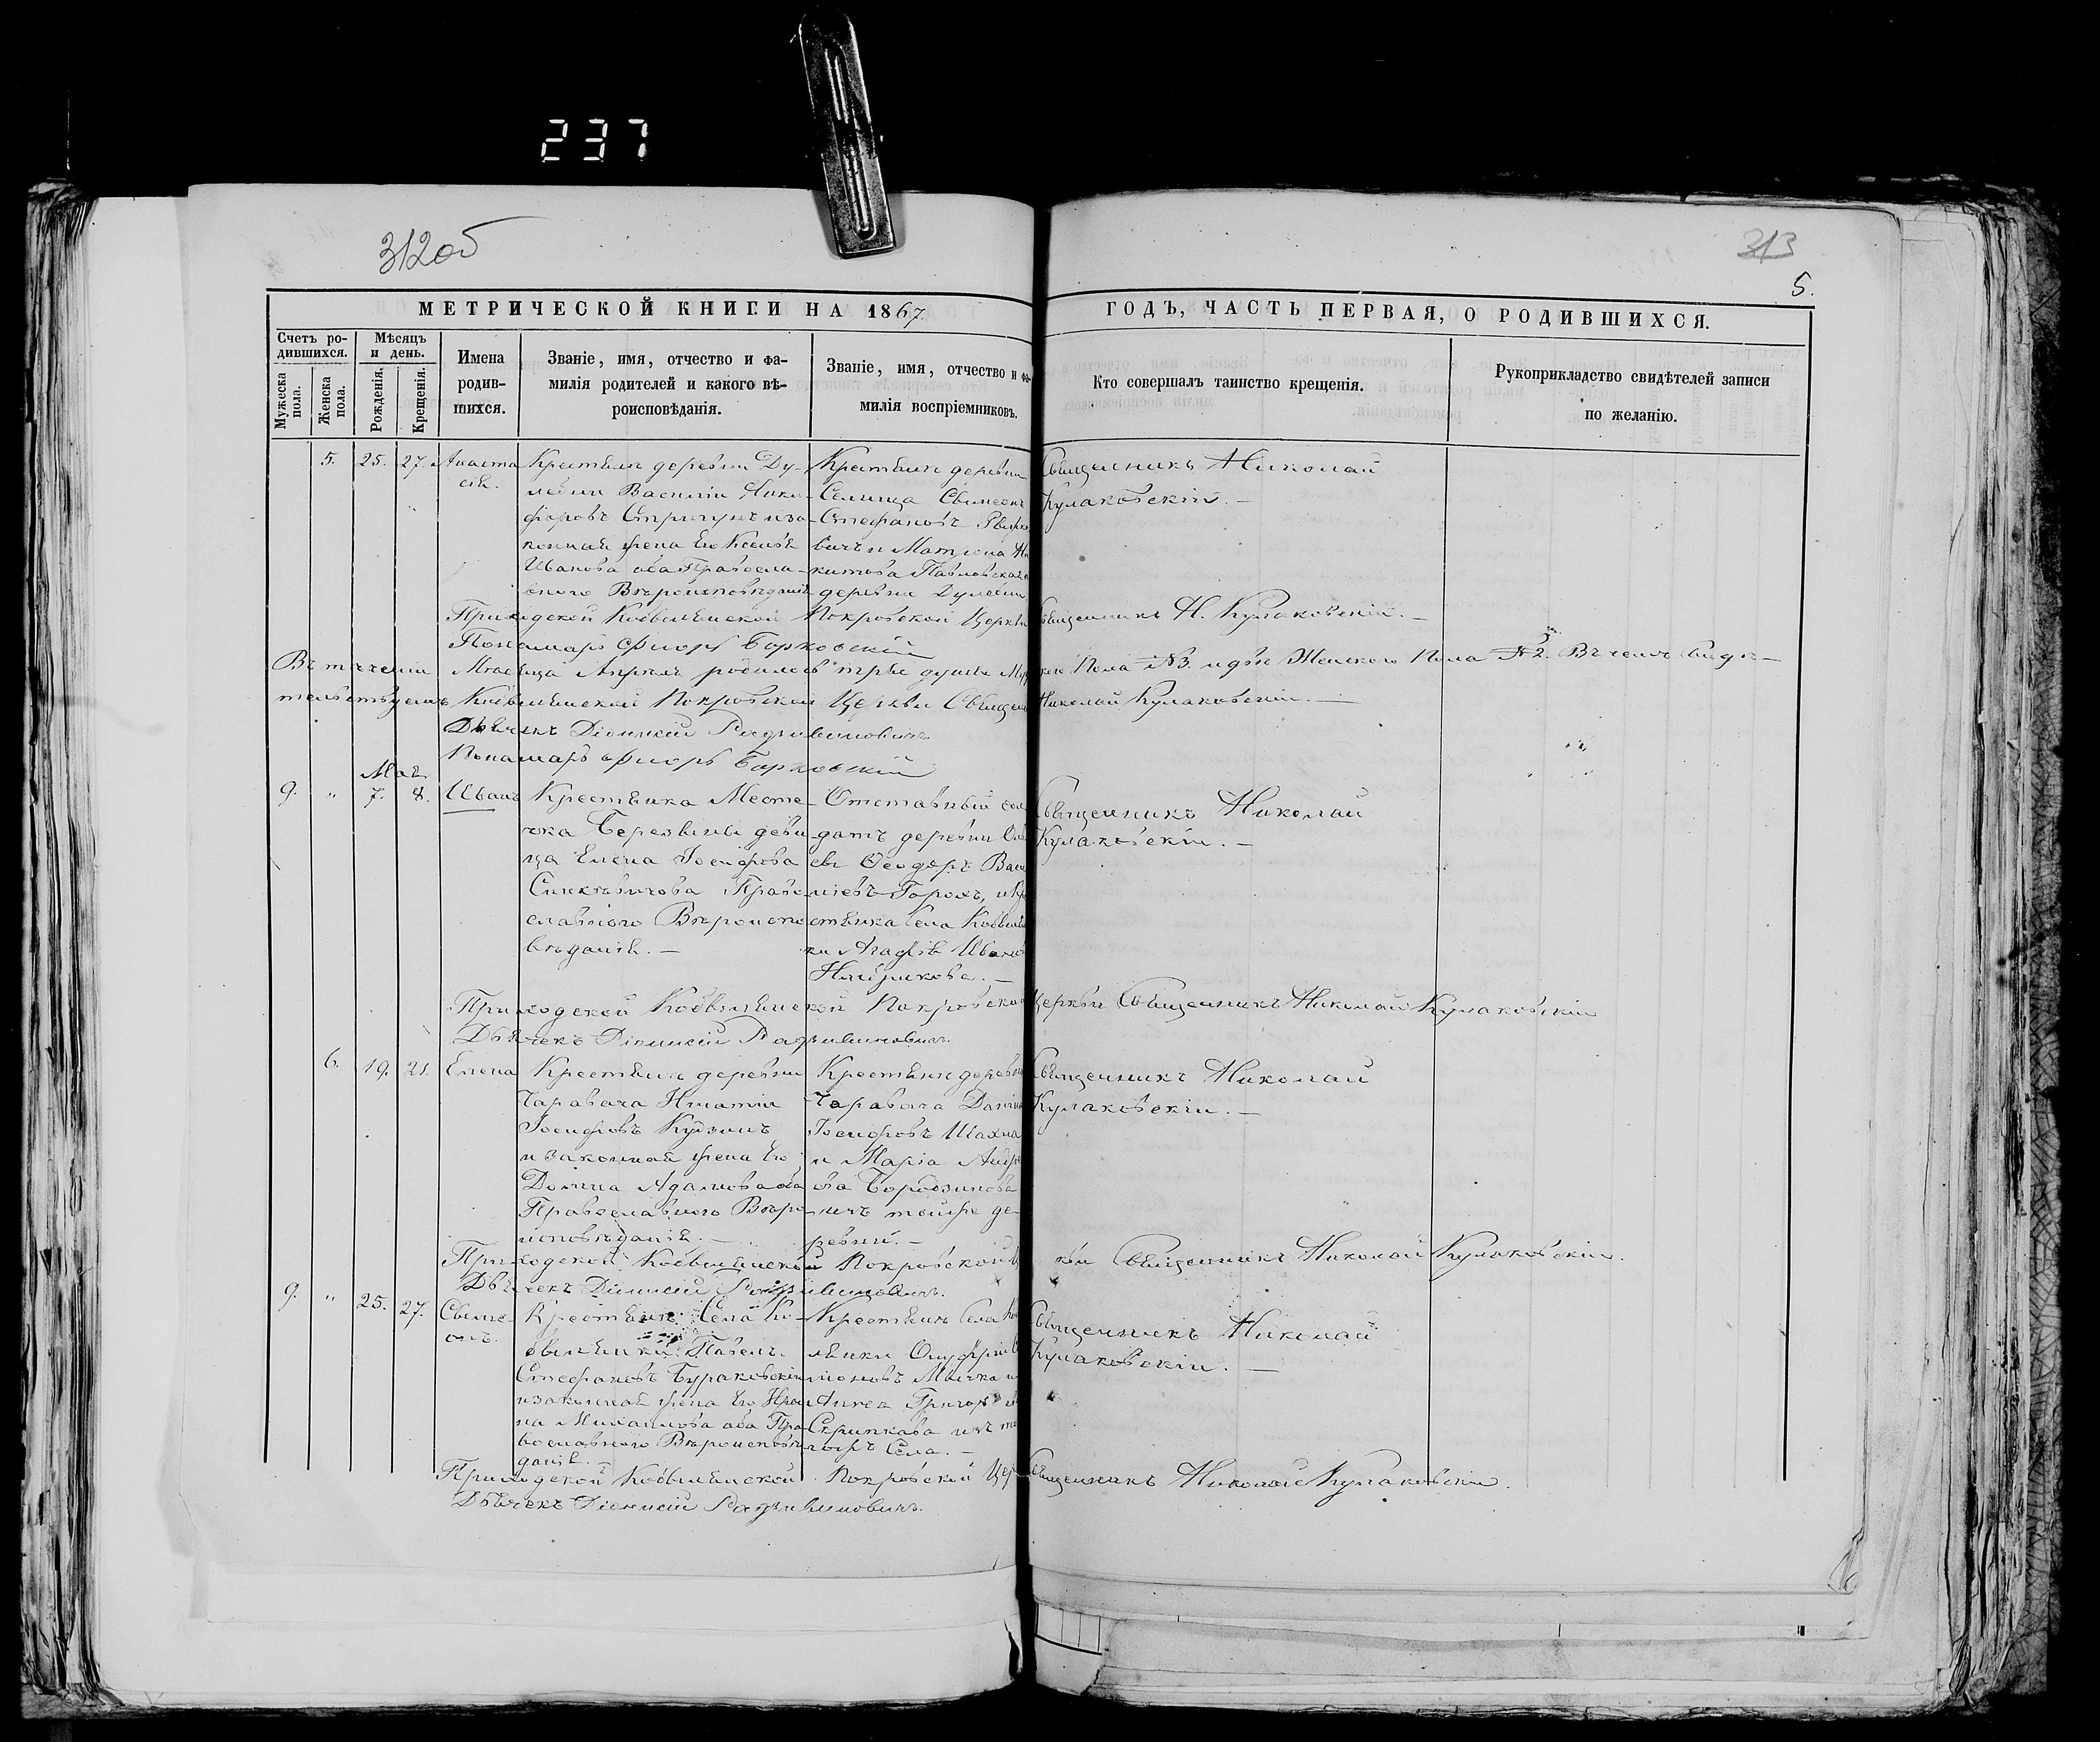 237
312об
313
5.
МЕТРИЧЕСКОЙ КНИГИ НА 1867
ГОДЪ, ЧАСТЬ ПЕРВАЯ, О РОДИВШИХСЯ.
Счетъ родившихся.
Мужеска пола.
Женска пола.
Мѣсяцъ и день.
Рожденія.
Крещенія.
Имена родившихся.
Званіе, имя, отчество и фамилія родителей и какого вѣроисповѣданія.
Званіе, имя, отчество и фамилія воспріемниковъ.
Кто совершалъ таинство крещенія.
Рукоприкладство свидѣтелей записи по желанію.
5. 25. 27. Анастасія.
Крестьянъ деревни Ду-
Василій Ники-
форовъ Стригунъ и за-
конная жена Его
Иванова оба Правосла-
внаго Вѣроисповѣданія
Крестьянъ деревни
Селища Свимеонъ
Стефановъ
вичъ и Матрона Ни
китова Павловская
деревни
Священникъ Николай
Кулаковскій. —
Приходской Кобыльникской Покровской Церкви Священникъ Н. Кулаковскій. —
Понамарь Флоръ Борковскій
Въ теченіи Мѣсяца Апрѣля родилось три души Муж
кого Пола №3. и двѣ Женского Пола №2. Въ чемъ Свидѣ-
тельствуемъ Кобыльникской Покровской Церкви Священ
Николай Кулаковскій. —
Дьячекъ Діонисій Радзивиновичъ
Понамарь Флоръ Борковскій
Мая
9. " 7. 8. Иванъ
Крестьянка Месте-
чка Березины деви-
ца Елена Іосифова
Право-
славного Вѣроиспо-
вѣданія. —
Отставный сол
датъ деревни
Феодоръ Васи
ліевъ Горохъ, и Кре
стьянка Села Кобыль
ки Агафія Иванов
Священникъ Николай
Кулаковскій. —
Приходской Кобыльникской Покровской Церкви Священникъ Николай Кулаковскій
Дьячекъ Діонисій Радзивиновичъ.
6. 19. 21. Елена
Крестьянъ деревни
Игнатій
Іосифовъ Кудзинъ
и законная жена Его
Адамова оба
Православного Вѣро-
исповѣданія. —
Крестьянъ деревни
Даніилъ
Іосифовъ Шахна
и Марія Андре
ева
тойже де-
ревни. —
Священникъ Николай
Кулаковскій. —
Приходской Кобыльникской Покровской
кви Священникъ Николай Кулаковскій.
Дьячекъ Діонисій Радзивиновичъ.
9. " 25. 27. Свиме-
онъ.
Крестьянъ Села Ко-
Павелъ
Стефановъ Бураковскій
и законная жена Его Ири
на Михаилова оба Пра-
вославного Вѣроисповѣ
данія.
Крестьянъ Села Коб
Онуфрій
моновъ и
Анна Григорь
Скрипкова изъ то
гожъ Села. —
Священникъ Николай
Кулаковскій. —
Приходской Кобыльникской Покровской Цер
Священникъ Николай Кулаковскій.
Дьячекъ Діонисій Радзивиновичъ.